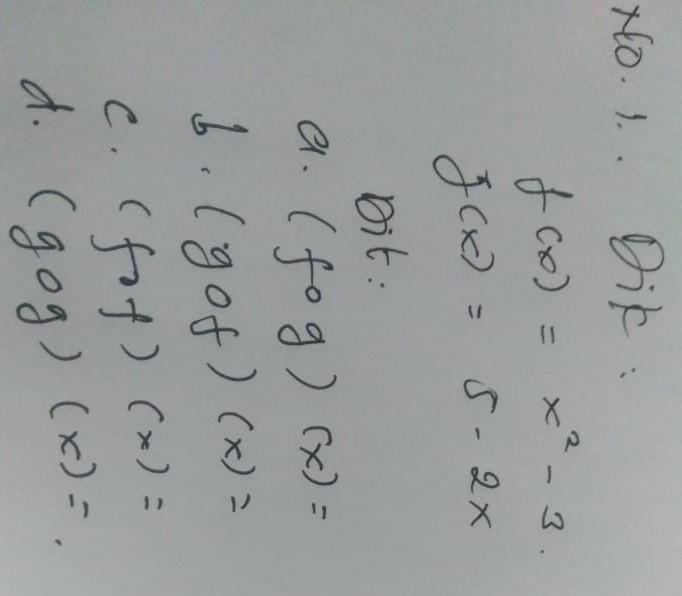 No. 1. Dik :
f(x) = x² - 3.
g(x) = 5 - 2x
Dit :
a. (fog) (x) =
b. (gof) (x) =
c. (fof) (x) =
d. (gog) (x) = .